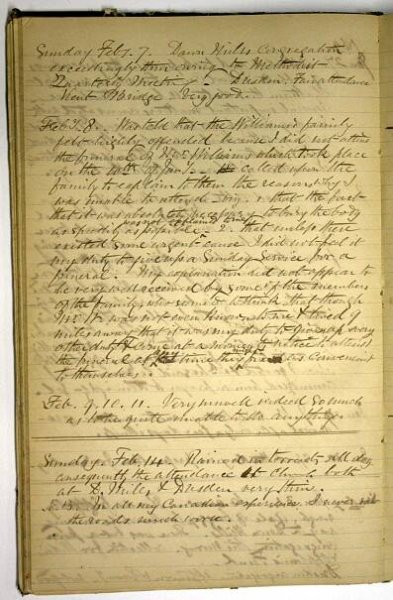 Sunday Feb. 7. Dawn Mills Congregation
exceedingly thin owing to Methodist
Quarterly Meeting. Dresden: Fair attendance
West Bridge Very good.
Feb. 8. Was told that the Williams family
felt highly offended because I did not attend
the funeral of Mr. Williams which took place
on the of Jan. I called upon the
family to explain to them the reasons why I
was unable to attend
that it was absolutely necessary to bury the body
as speedily as possible. 2. that unless there
existed some urgent cause I did not feel it
my duty to give up a Sunday Service for a
funeral. My explanation did not appear to
be very well received by some of the members
of the family who seemed to think that though
Mr. W. was not even known to me & lived
miles away that it was my duty to give up every
other duty & come at a moment's notice to attend
the funeral at the time they convenient
to themselves.
Feb. 9. 10. 11. Very unwell indeed so much
as to be quite unable to do anything.
Sunday, Feb. 14. Rained in torrents all day
consequently the attendance at Church both
at D. Mills & Dresden very thin.
N.B. In all my Canadian experience I never saw
the roads much worse.